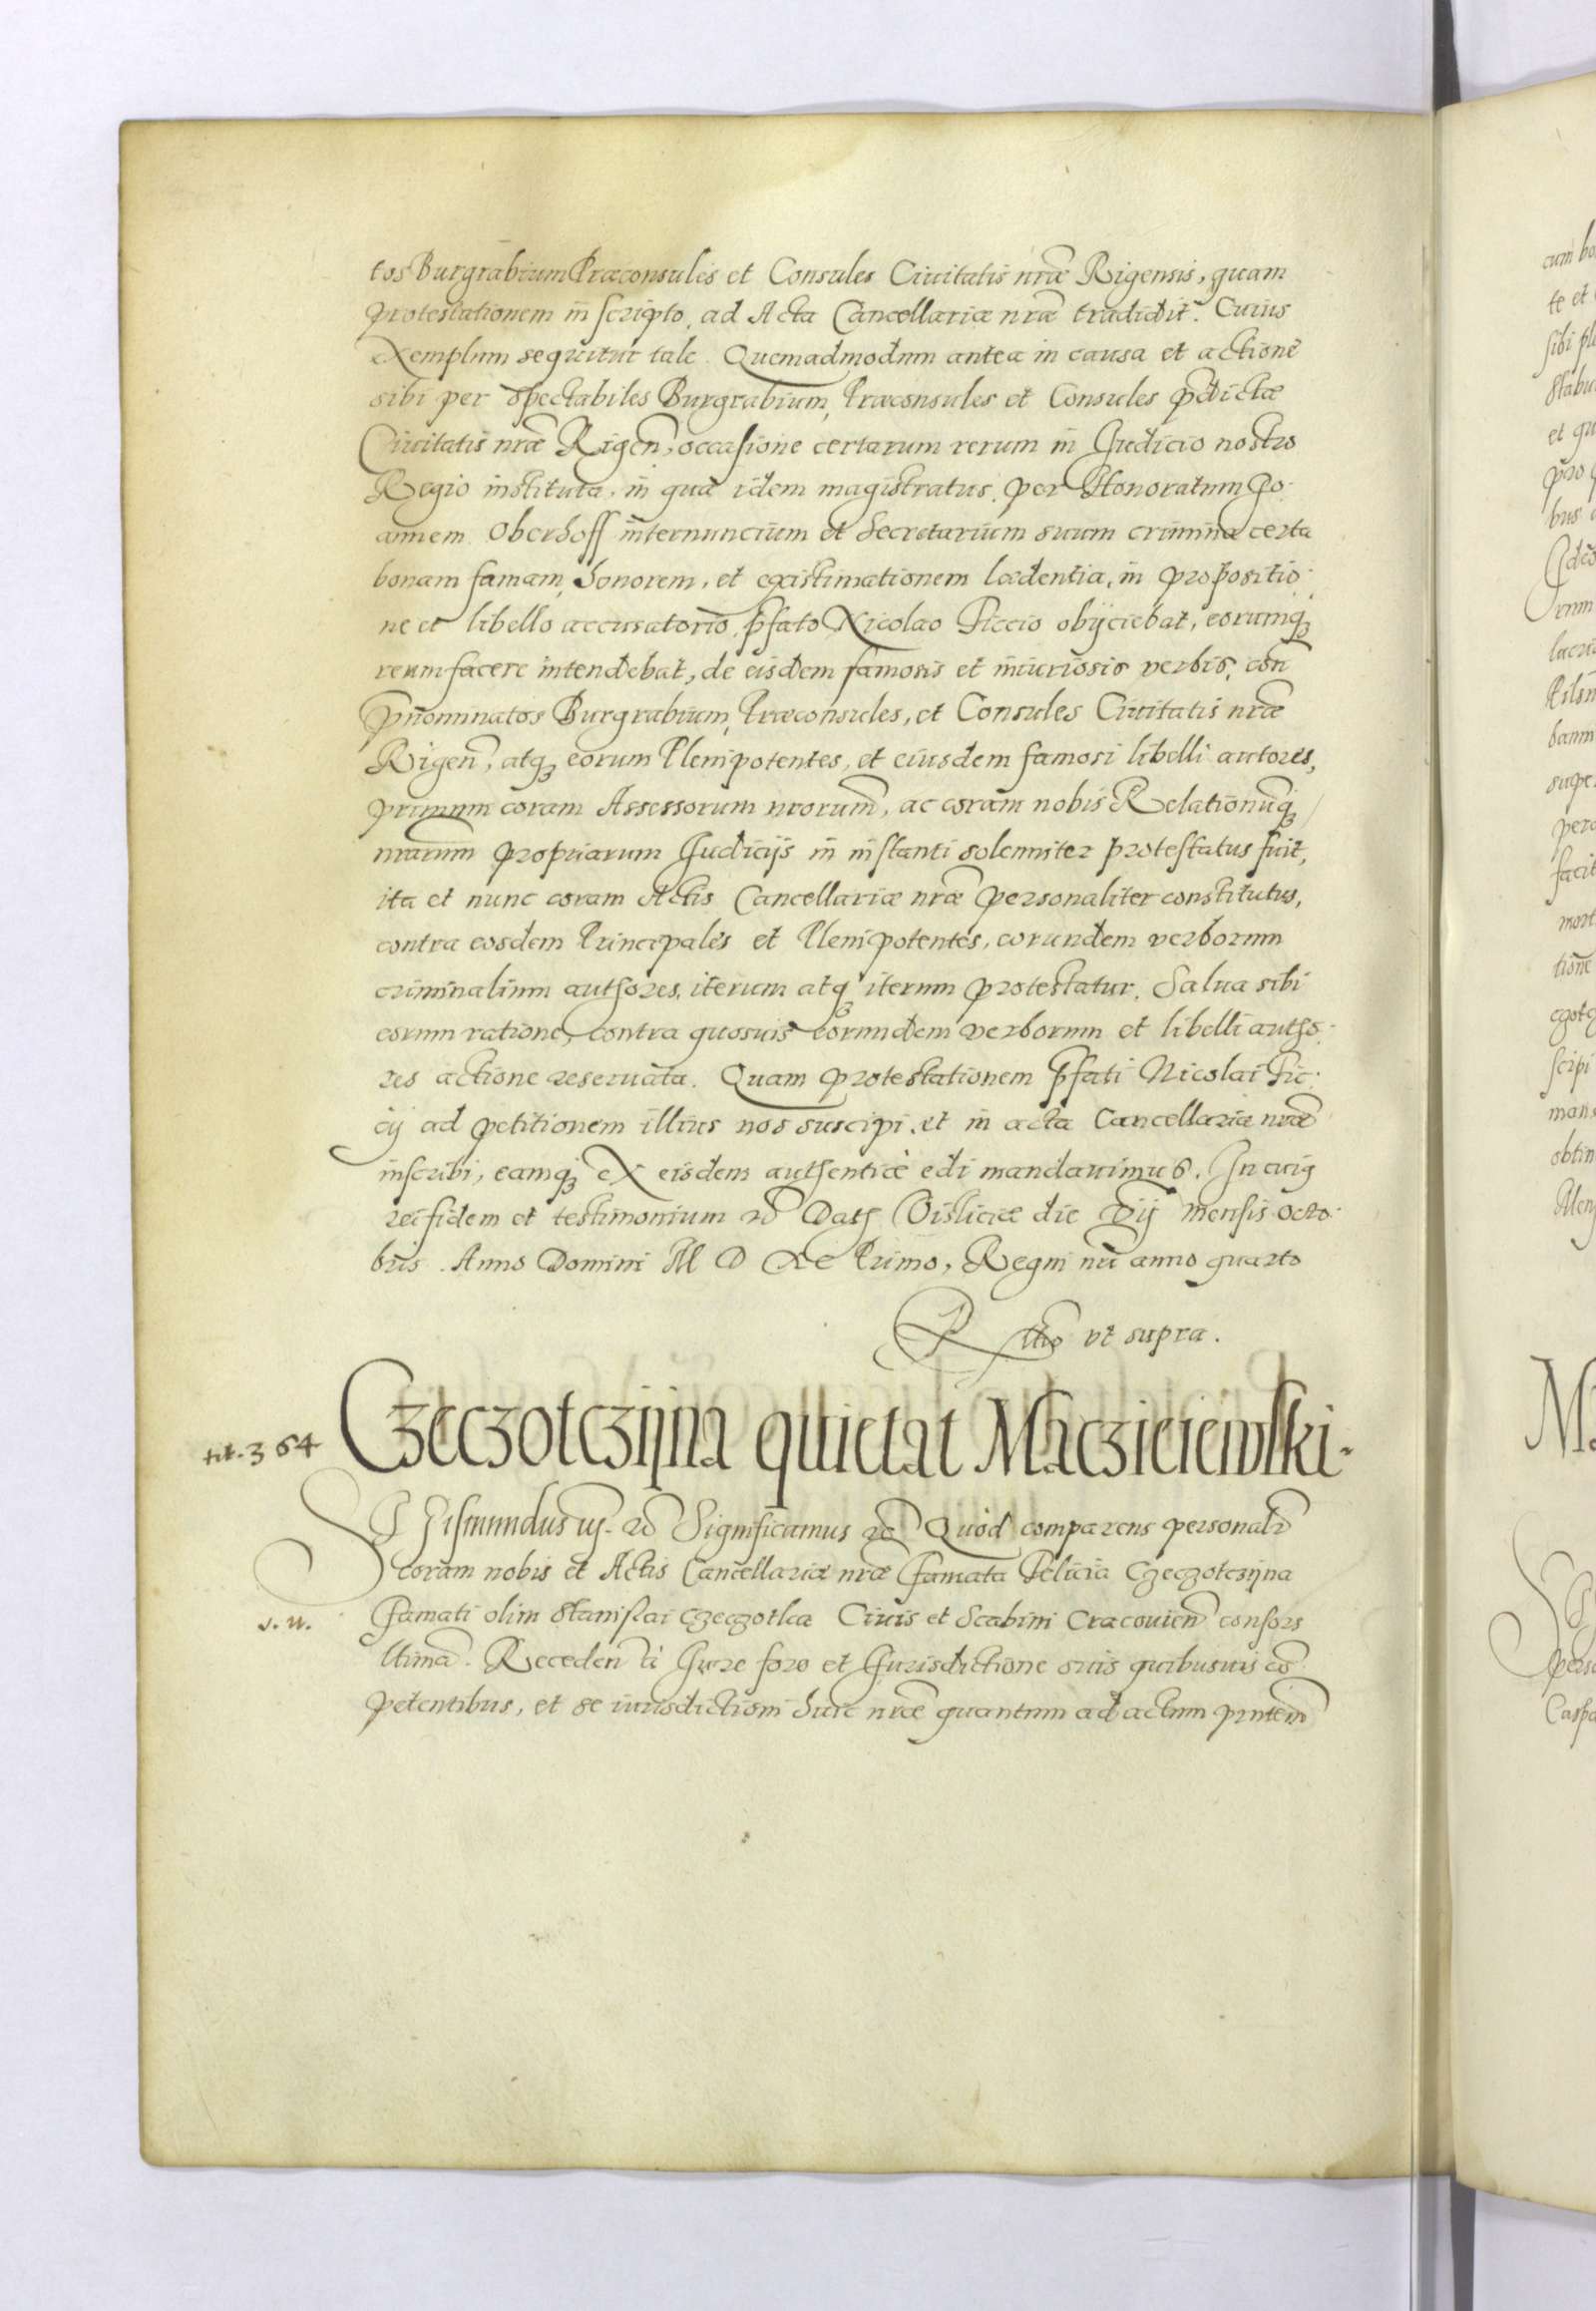 tos Burgrabium Præconsules et Consules Ciuitatis nr̃æ Rigensis, quam
protestationem in scripto, ad Acta Cancellariæ nr̃æ tradidit. Cuius
exemplum sequitur tale. Quemadmodum antea in causa et actione
sibi per spectabiles Burgrabium, Præconsules et Consules p̃dictæ
Ciuitatis nr̃æ Rigen̄, occasione certarum rerum in Iudicio nostro
Regio instituta, in qua idem magistratus, per Honoratum Jo-
annem Oberhoff internuncium et Secretarium suum crimina certa
bonam famam, honorem, et existimationem lædentia, in propositio-
ne et libello accusatorio, p̃fato Nicolao Piccio obijciebat, eorumq́ꝫ
reum facere intendebat, de eisdem famosis et iniuriosis verbis, con̄
p̃nominatos Burgrabium, Præconsules, et Consules Ciuitatis nr̃æ
Rigen̄, atqꝫ eorum Plenipotentes, et eiusdem famosi libelli autores,
primum coram Assessorum nr̃orum, ac coram nobis Relationumq́ꝫ
nr̃arum propriarum Iudicijs in instanti solenniter protestatus fuit,
ita et nunc coram Actis Cancellariæ nr̃æ personaliter constitutus,
contra eosdem Principales et Plenipotentes, eorundem verborum
criminalium authores, iterum atqꝫ iterum protestatur. Salua sibi
eorum ratione, contra quosuis eorundem verborum et libelli autho-
res actione reseruata. Quam protestationem p̃fati Nicolai Pic-
cij ad petitionem illius nos suscipi, et in acta Cancellariæ nr̃æ
inscribi, eamqꝫ ex eisdem authenticè edi mandauimus. In cuiꝰ
rei fidem et testimonium ꝛc̃ Dat̃ Visliciæ die Vij mensis Octo-
bris. Anno Domini M D XC Primo, Regni nr̃i anno quarto
R̃tio vt supra.
tit. 364 Czeczotczijna quietat Maczieieiwski.
Sigismundus iij. ꝛc̃ Significamus ꝛc̃ Quòd comparens personalr̃
coram nobis et Actis Cancellariæ nr̃æ Famata Felicia Czeczotczijna
s. n. Famati olim Stanislai Czeczotka Ciuis et Scabini Cracouien̄ consors
l̃tima. Receden̄ à Iure foro et Iurisdictione suis quibusuis cō-
petentibus, et se iurisdictioni huic nr̃æ quantum ad actum p̃ntem